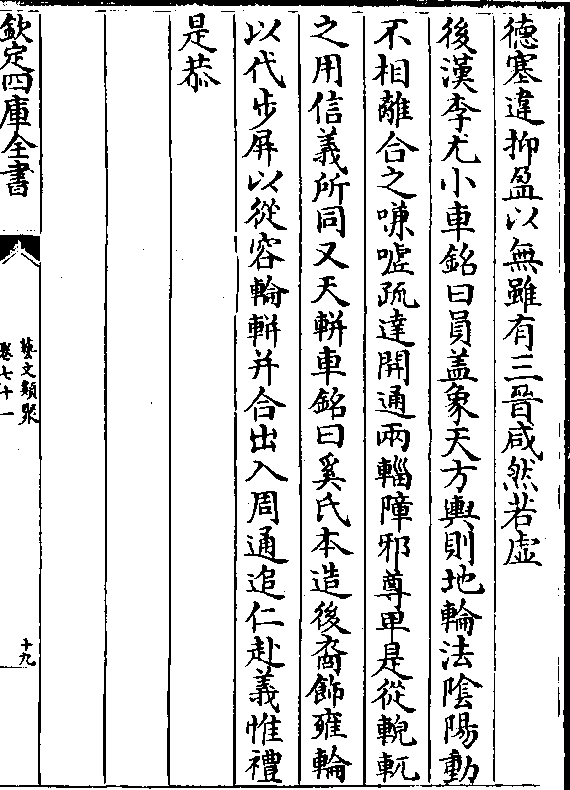 德塞違抑盈以無雖有三晉咸然若虛
後漢李尤小車銘曰員盖象天方輿則地輪法陰陽動
不相離合之嗛噓疏達開通兩輜障邪尊卑是從輗軏
之用信義所同又天軿車銘曰奚氏本造後裔飾雍輪
以代步屏以從容輪軿并合出入周通追仁赴義惟禮
是恭
欽定四庫全書
藝文類聚
卷七十一
十九